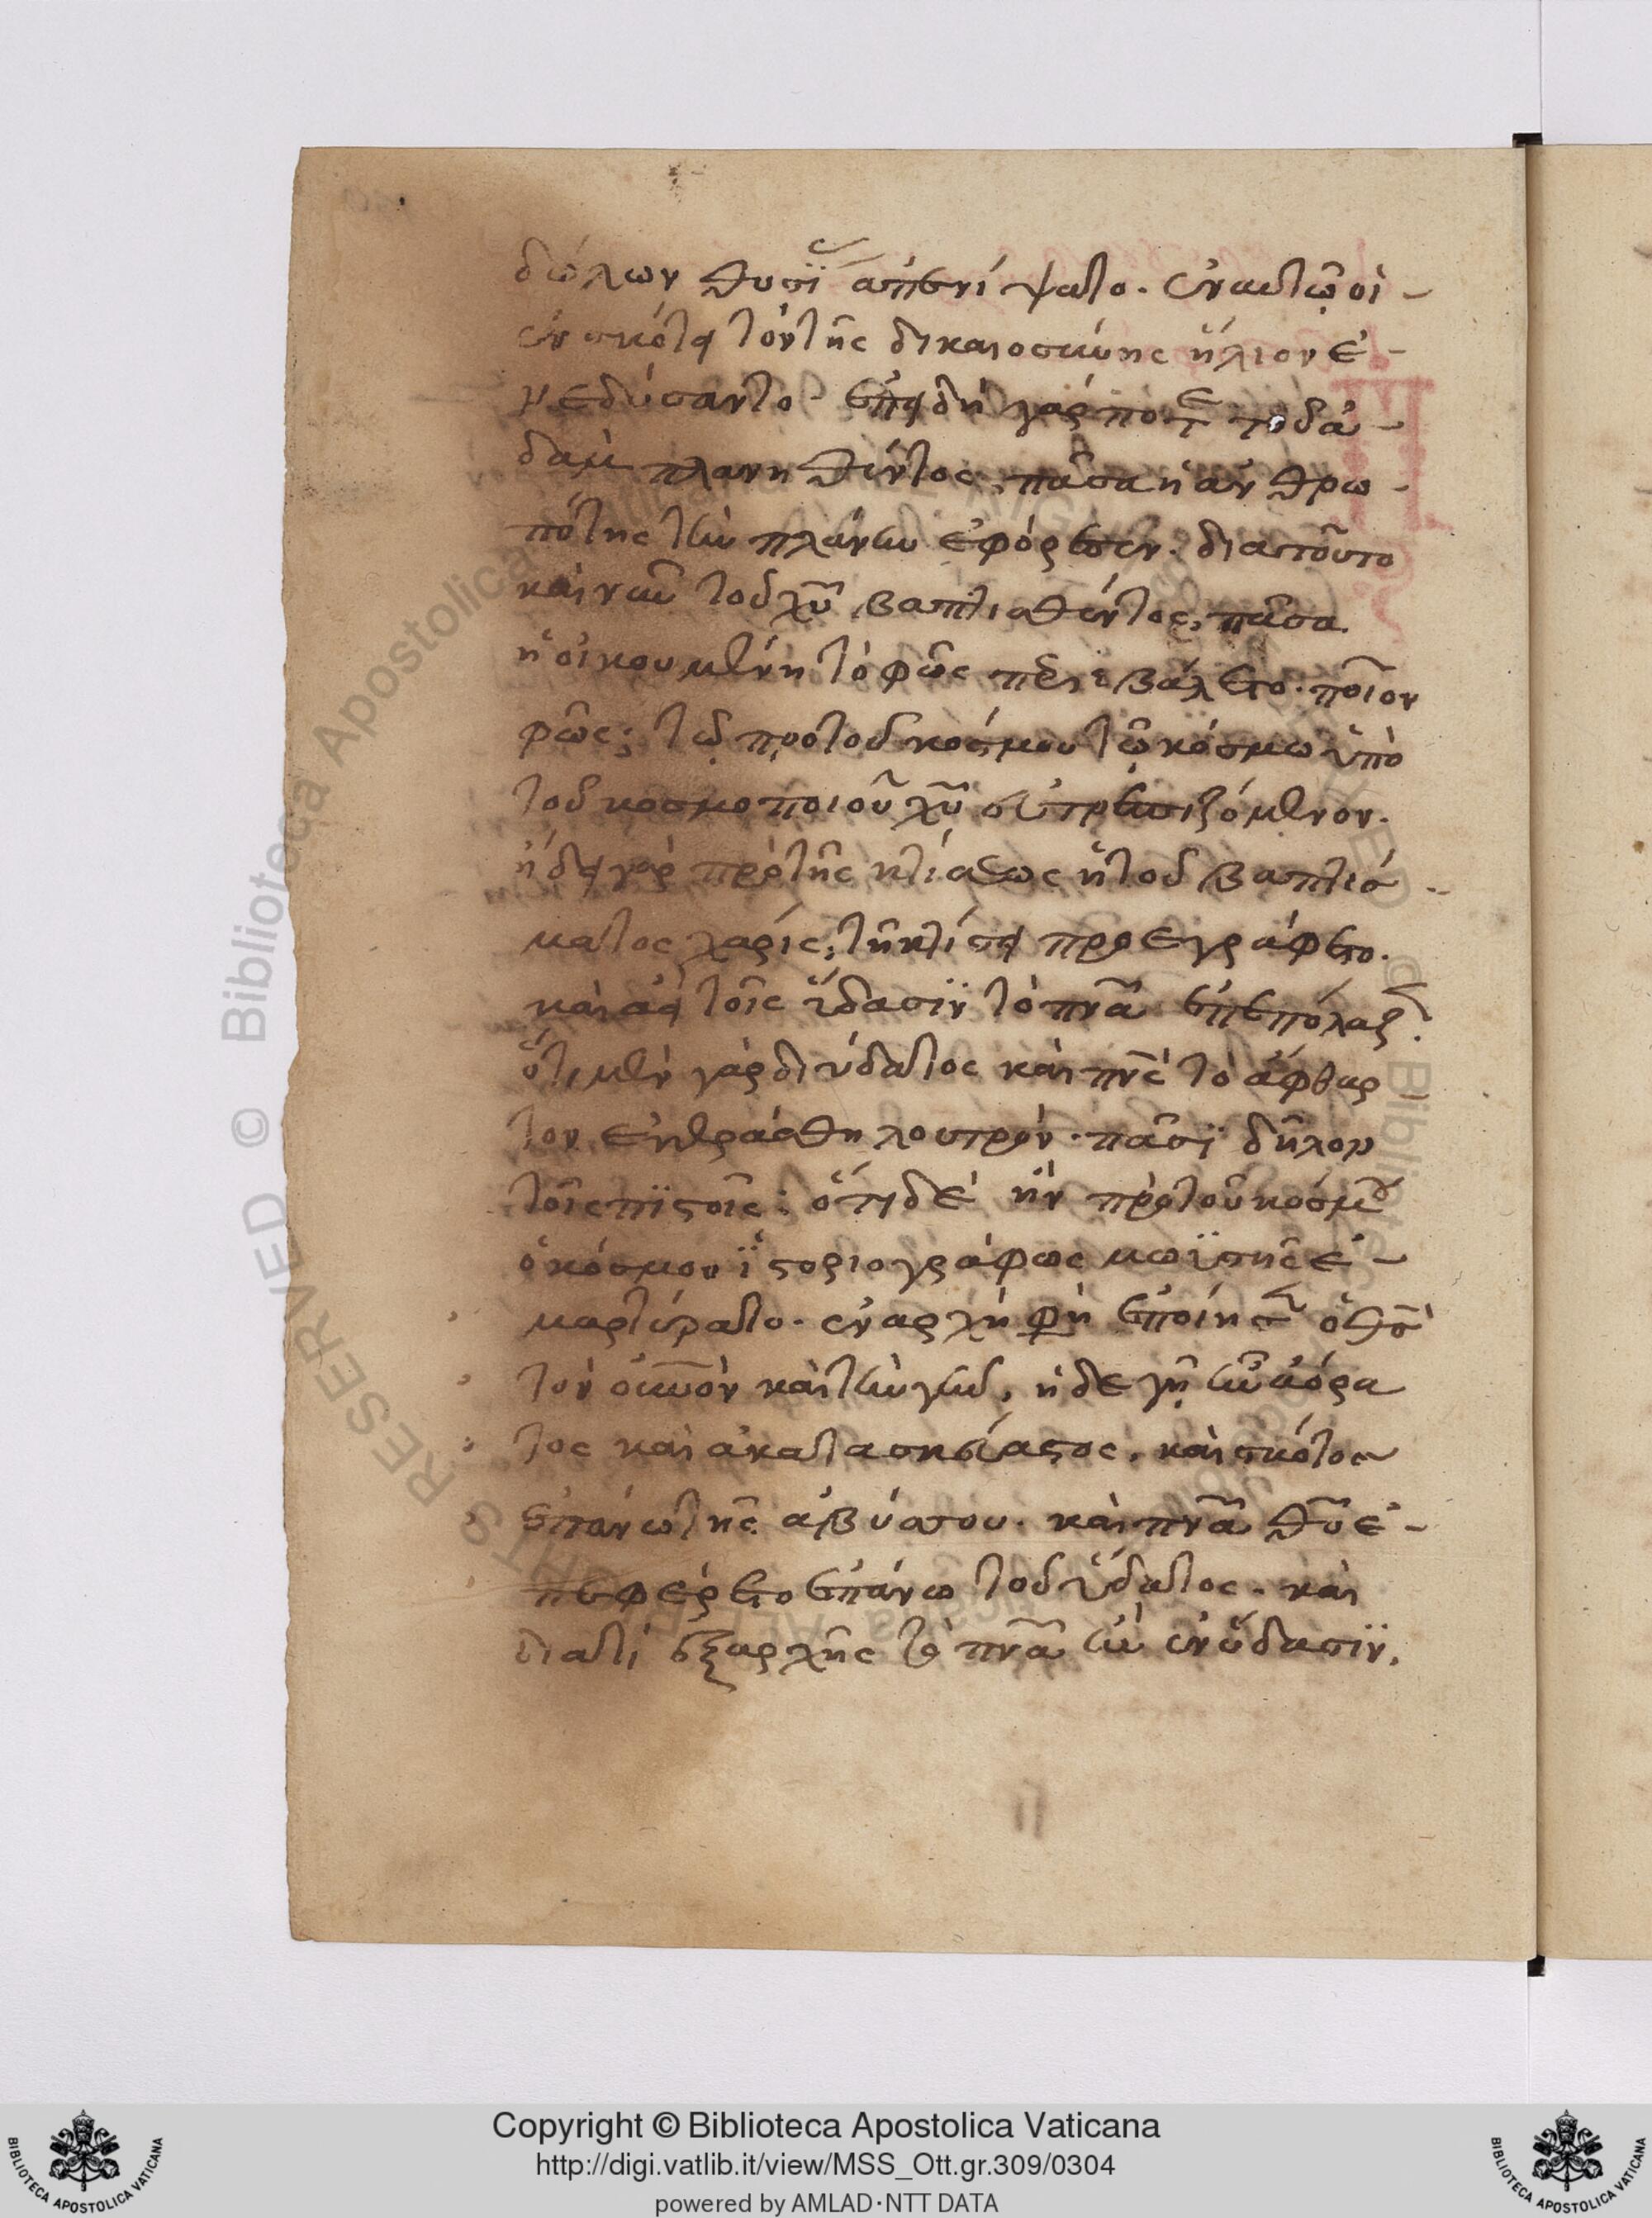 δώλων θυσϊ ἀπενίψατο. ἐν αὐτῶ οἱ -
ἐν σκότει τὸν τῆς δικαιοσύνης ἥλιον ἐ -
νεδύσαντο· ἐπειδὴ γάρ ποτε τοῦ ἀ -
δαμ πλανηθέντος, πᾶσα ἡ ἀνθρω -
πότης τὴν πλάνην ἐφόρεσεν. διατοῦτο
καὶ νῦν τοῦ χῦ βαπτισθέντος, πᾶσα
ἡ οἰκουμένη τὸ φῶς περιεβάλετο. ποῖον
φῶς; τῶ προ τοῦ κόσμου τῶ κόσμω ὑπὸ
τοῦ κοσμοποιοῦ χῦ εὐτρεπιζόμενον.
ἤδει γὰρ πρὸ τῆς κτίσεως ἡ τοῦ βαπτίσ -
ματος χάρις, τῆ κτίσει προεγράφετο.
καὶ ἀεὶ τοῖς ὕδασϊν τὸ πνᾶ ἐπεπόλαζ.
ὅτι μὲν γὰρ δι ὕδατος καὶ πνς τὸ ἄφθαρ
τον ἐκεράσθη λουτρόν. πᾶσϊ δῆλον
τοῖς πϊστοῖς: ὅτι δὲ ἦν πρὸ τοῦ κόσμου
ὁ κόσμου ἱστοριογράφως μωϋσῆς ἐ -
μαρτύρατο. ἐν ἀρχῆ φη ἐποίησεν ὁ θς
τὸν οὐνὸν καὶ τὴν γῆν, ἡ δε γῆ ἦν ἀόρα
τος καὶ ἀκατασκεύαστος, καὶ σκότος
ἐπάνω τῆς ἀβύσσου. καὶ πνᾶ θῦ ἐ -
πεφέρετο ἐπάνω τοῦ ὕδατος. καὶ
διατί ἐξαρχῆς τὸ πνᾶ ἦν ἐν ὕδασϊν,
Copyright © Biblioteca Apostolica Vaticana
http://digi.vatlib.it/view/MSS_Ott.gr.309/0304
powered by AMLAD·NTT DATA